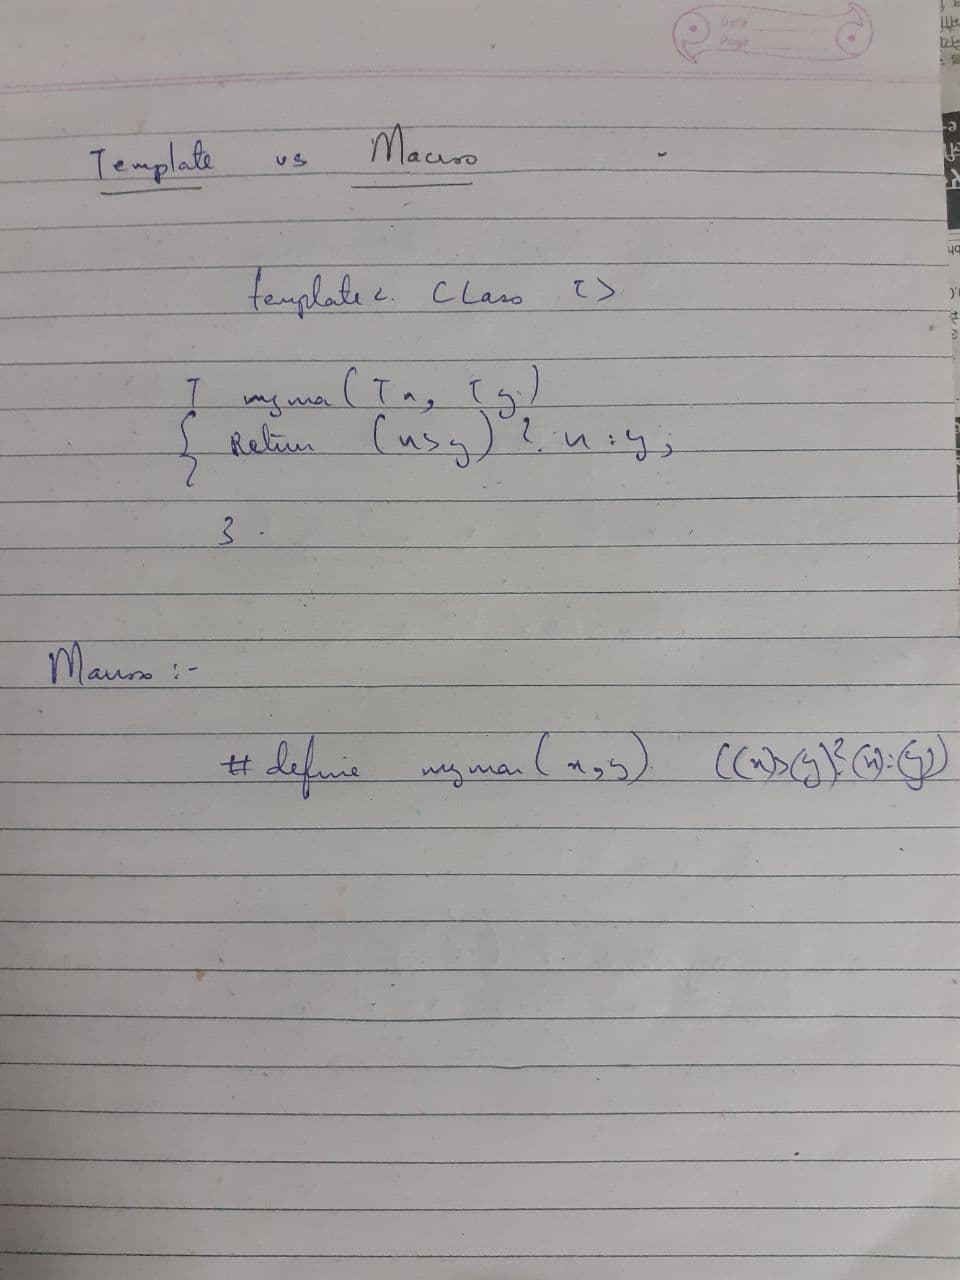 Date
Page
Template vs Macro
template < Class T>
T mymax (T x, T y)
{ Return (x>y) ? x : y;
}
Macro :-
# define mymax (x,y) ((x)>(y)?(x):(y))